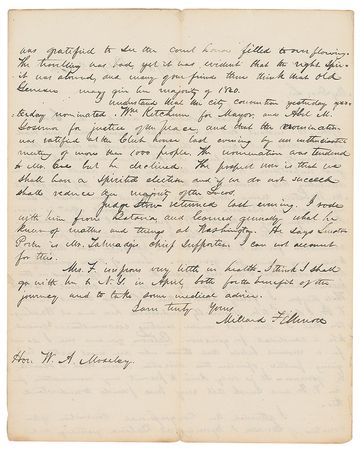 was gratified to see the court house filled to overflowing.
The travelling was bad, yet it was evident that the right spir-
it was abroad, and many of our friends there think that old
Genesee may give her majority of 1840.
I understand that the city convention yesterday yes-
terday nominated Wm Ketchum for Mayor, and
for justice of the peace, and that the nomination
was ratified at the Club house last evening by an enthusiastic
meeting of more than 1000 people. The nomination was tendered
to Mr. but he declined. The prospect now is that we
shall have a spirited election and if we do not succeed
shall reduce the majority of the Locos.
Judge Stow returned last evening. I rode
with him from Batavia and learned generally what he
knew of matters and things at Washington. He says Senator
Porter is Mr. Talmadge's chief supporter. I can not account
for this.
Mrs. F. improves very little in health. I think I shall
go with her to N.Y. in April, both for the benefit of the
journey and to take some medical advice.
I am truly Yours
Millard Fillmore
Hon. W. A. Moseley.